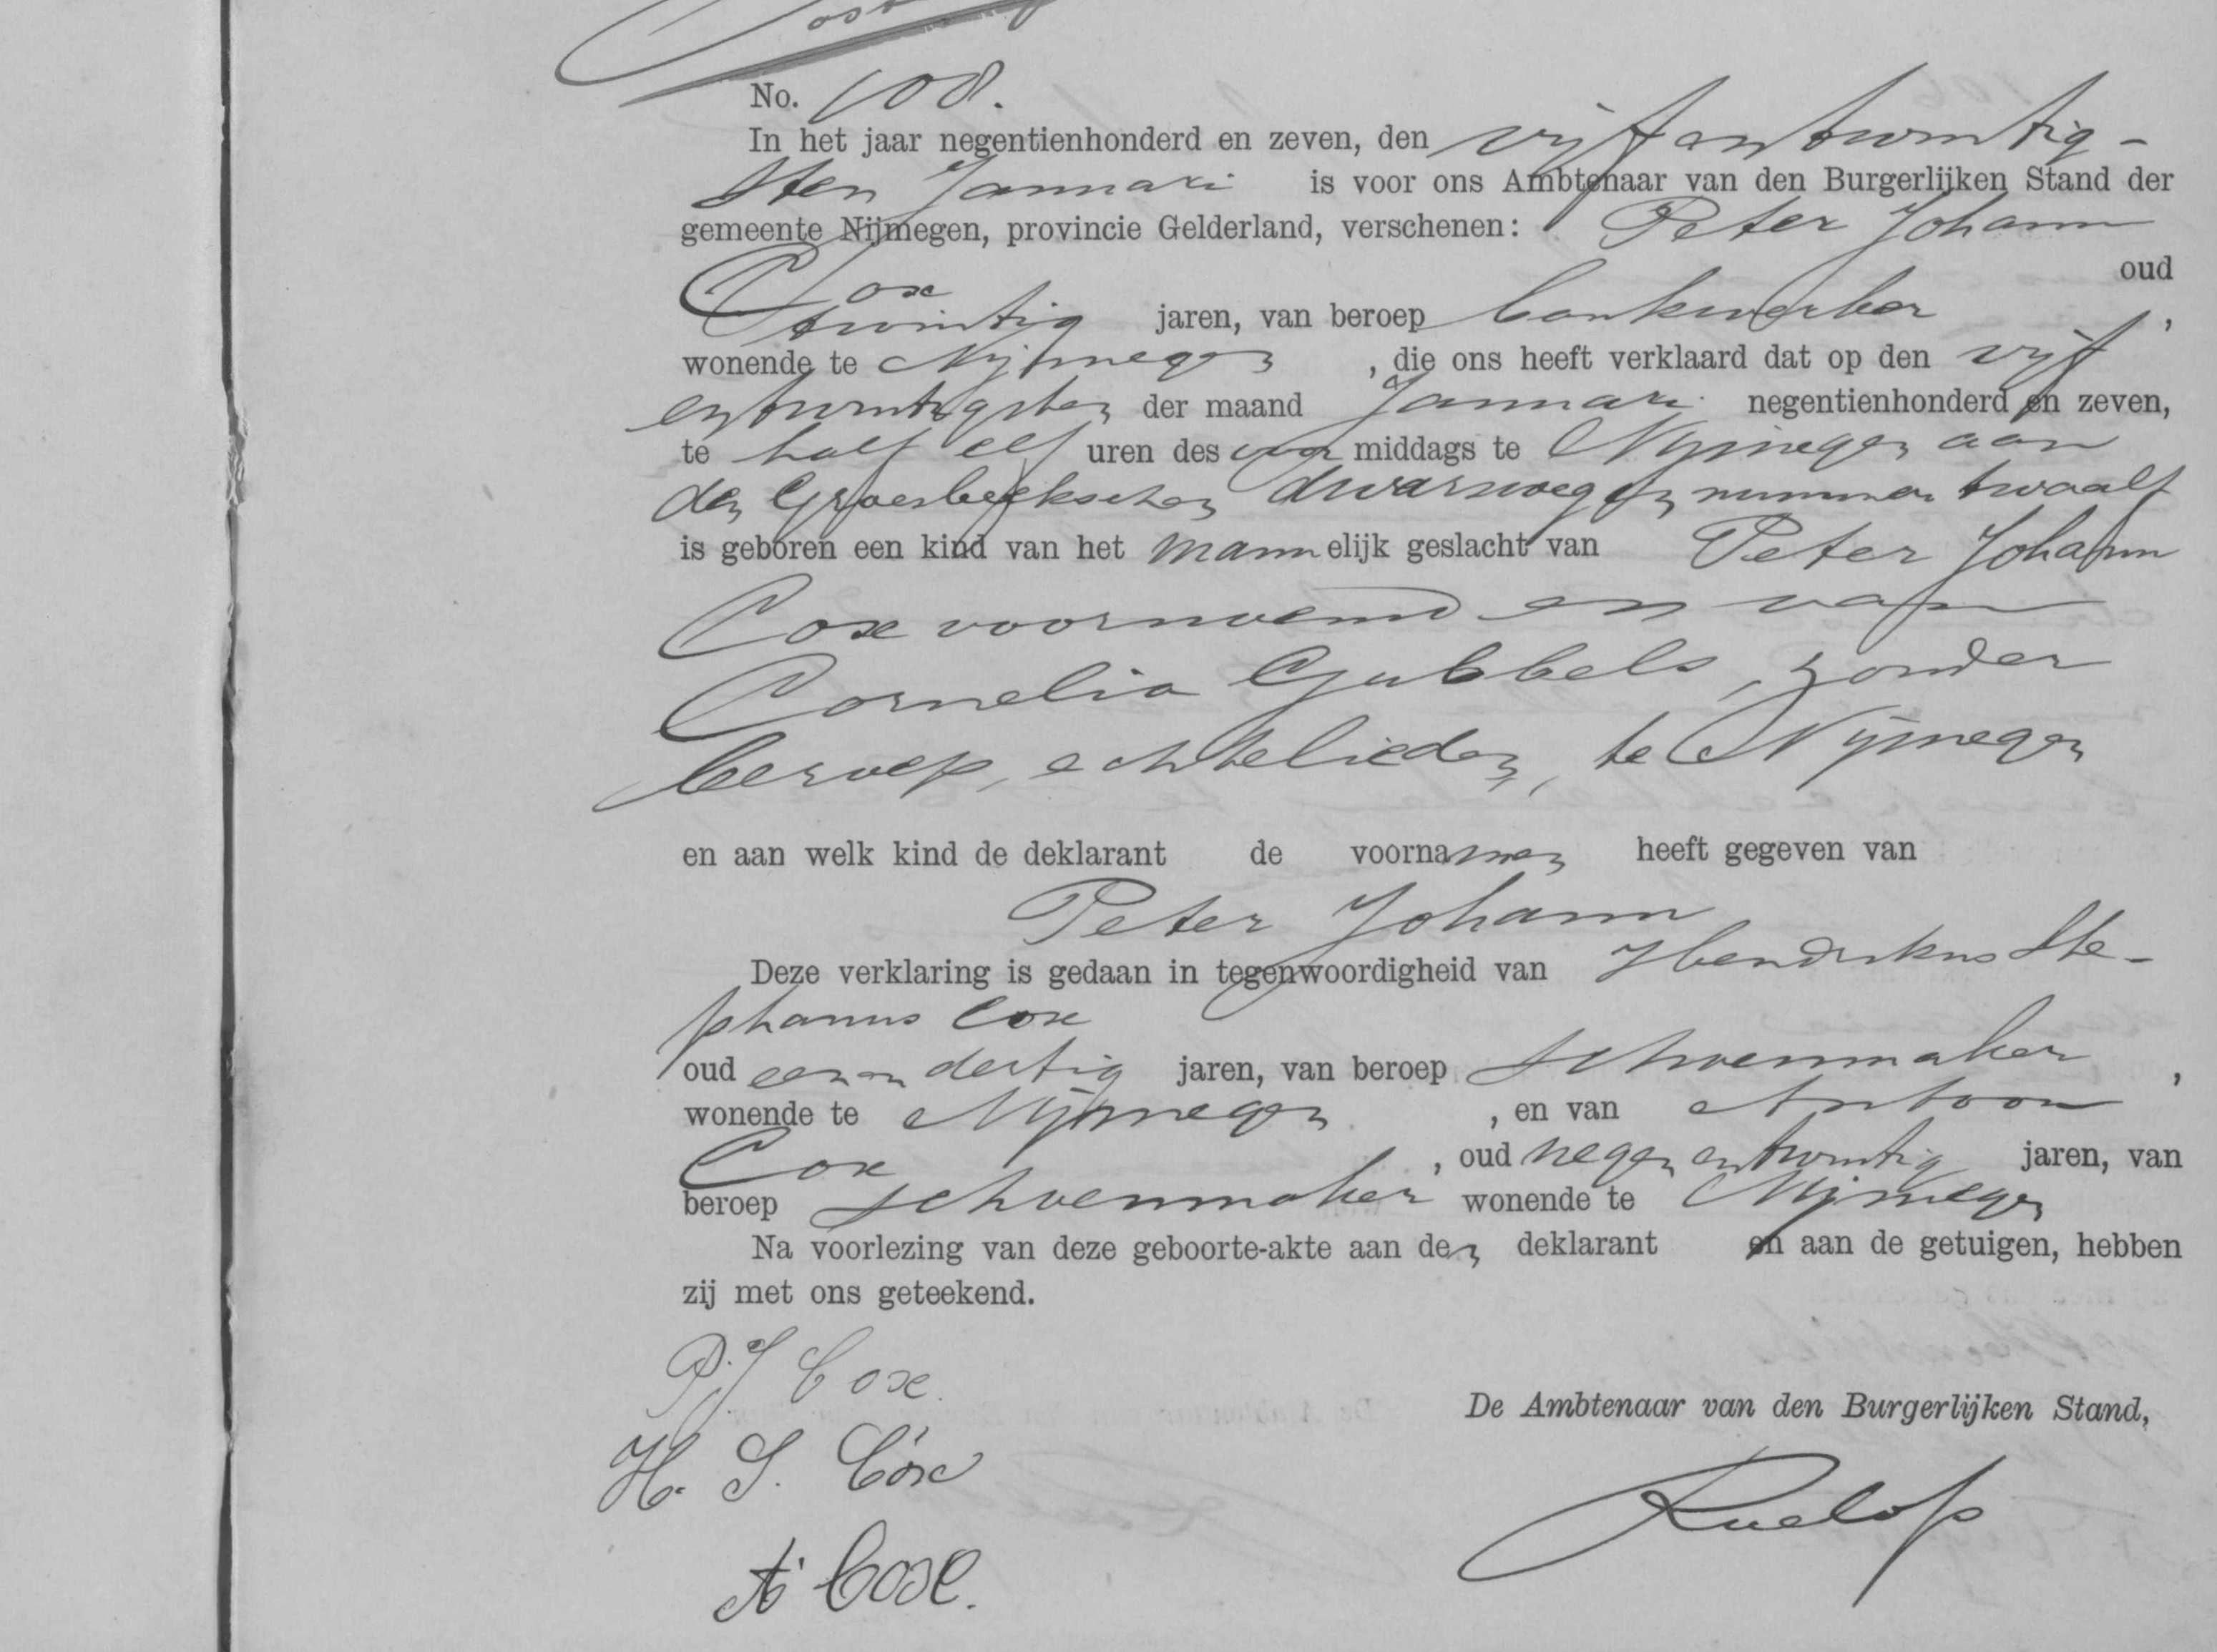 No. 108.
In het jaar negentienhonderd en zeven, den vijfentwintig-
sten Januari is voor ons Ambtenaar van den Burgerlijken Stand der
gemeente Nijmegen, provincie Gelderland, verschenen: Peter Johann
Cox oud
twintig jaren, van beroep bankwerker,
wonende te Nijmegen, die ons heeft verklaard dat op den vijf
entwintigsten der maand Januari negentienhonderd en zeven,
te half elf uren des voor middags te Nijmegen aan
den Groesbeekschen dwarsweg in nummer twaalf
is geboren een kind van het mannelijk geslacht van Peter Johann
Cox voornoemd en van
Cornelia Gubbels, zonder
beroep, echtelieden, te Nijmegen
en aan welk kind de deklarant de voornamen heeft gegeven van
Peter Johann
Deze verklaring is gedaan in tegenwoordigheid van Hendrikus Ste-
phanus Cox
oud eenendertig jaren, van beroep schoenmaker,
wonende te Nijmegen, en van Antoon
Cox, oud negenentwintig jaren, van
beroep schoenmaker wonende te Nijmegen
Na voorlezing van deze geboorte-akte aan den deklarant en aan de getuigen, hebben
zij met ons geteekend.
P. J Cox.
H. S. Cox
De Ambtenaar van den Burgerlijken Stand,
A Cox.